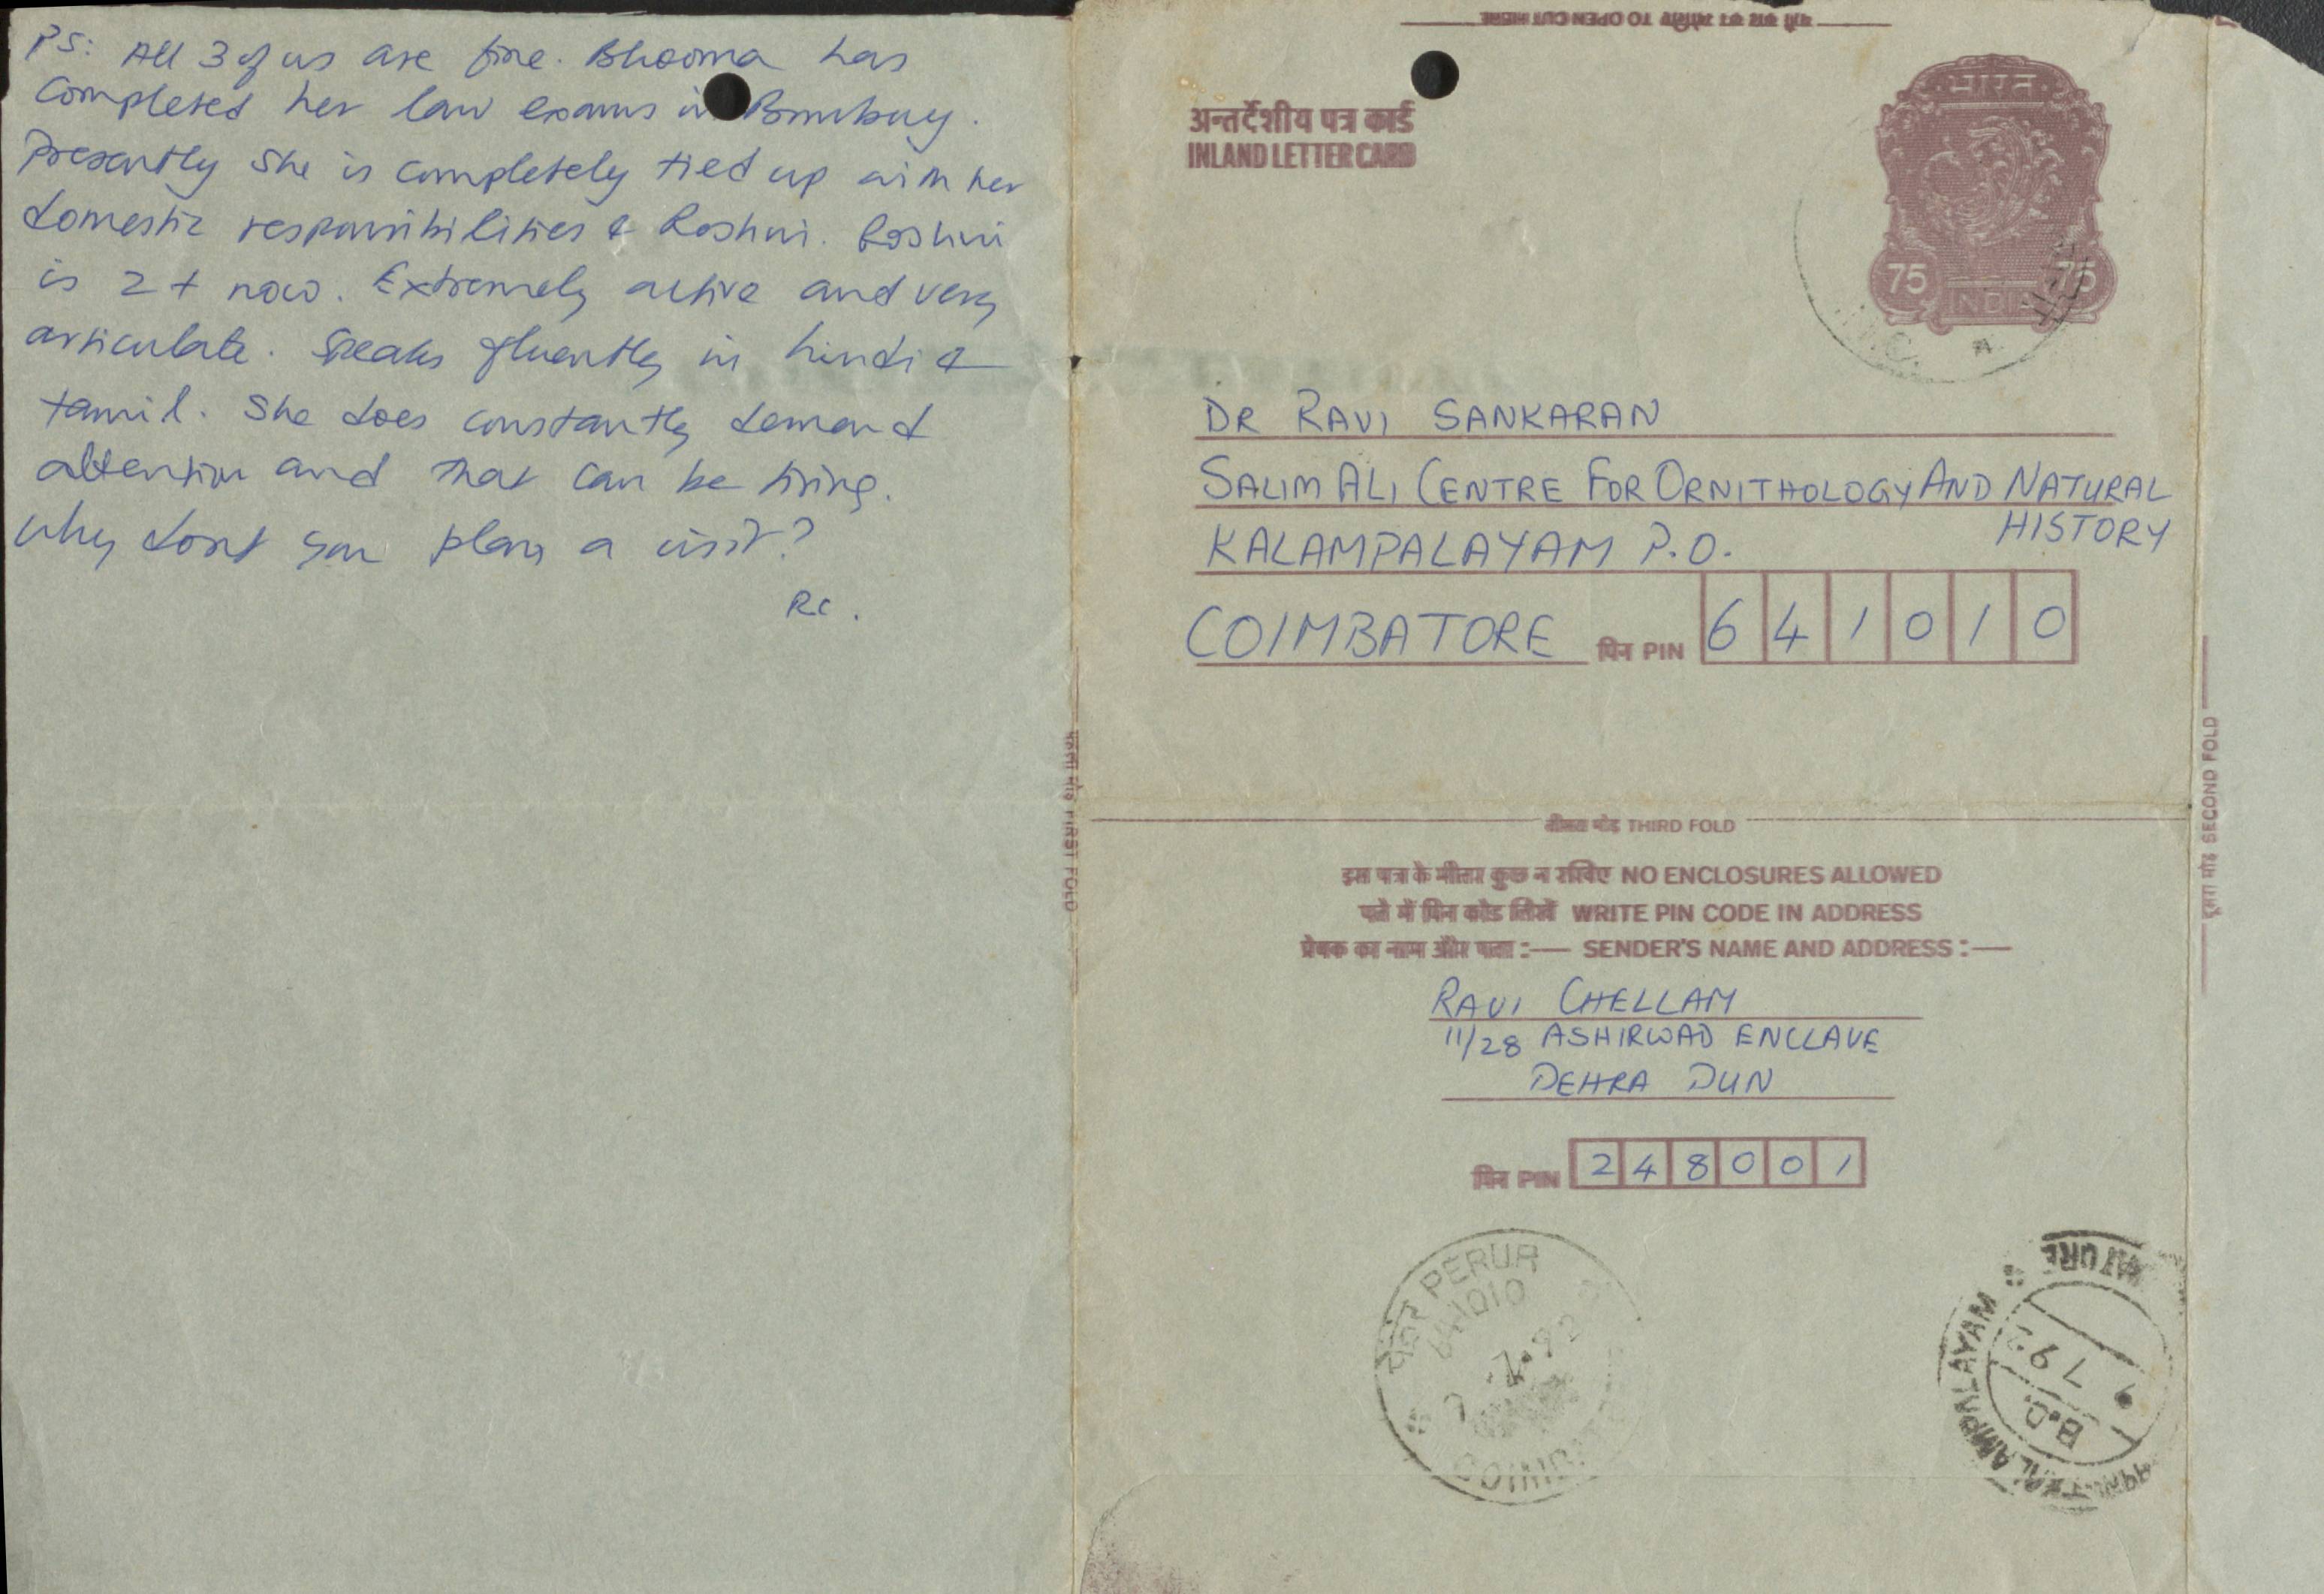 PS: All 3 of us are fine. Bhooma has
completed her law exams in Bombay.
Presently she is completely tied up with her
domestic responsibilities & Roshni. Roshni
is 2+ now. Extremely active and very
articulate. Speaks fluently in hindi &
tamil. She does constantly demand
attention and that can be tiring.
Why dont you plan a visit?
RC.
यहाँ काट कर खोलिए TO OPEN CUT HERE
अन्तर्देशीय पत्र कार्ड
INLAND LETTER CARD
भारत
75 75
INDIA
DR RAVI SANKARAN
SALIM ALI CENTRE FOR ORNITHOLOGY AND NATURAL
HISTORY
KALAMPALAYAM P.O.
COIMBATORE पिन PIN 641010
पहला मोड़ FIRST FOLD
दूसरा मोड़ SECOND FOLD
तीसरा मोड़ THIRD FOLD
इस पत्र के भीतर कुछ न रखिए NO ENCLOSURES ALLOWED
पते में पिन कोड लिखें WRITE PIN CODE IN ADDRESS
प्रेषक का नाम और पता :— SENDER'S NAME AND ADDRESS :—
RAVI CHELLAM
11/28 ASHIRWAD ENCLAVE
DEHRA DUN
पिन PIN 248001
PERUR
641010
7.92
KALAMPALAYAM
B.O.
7 92